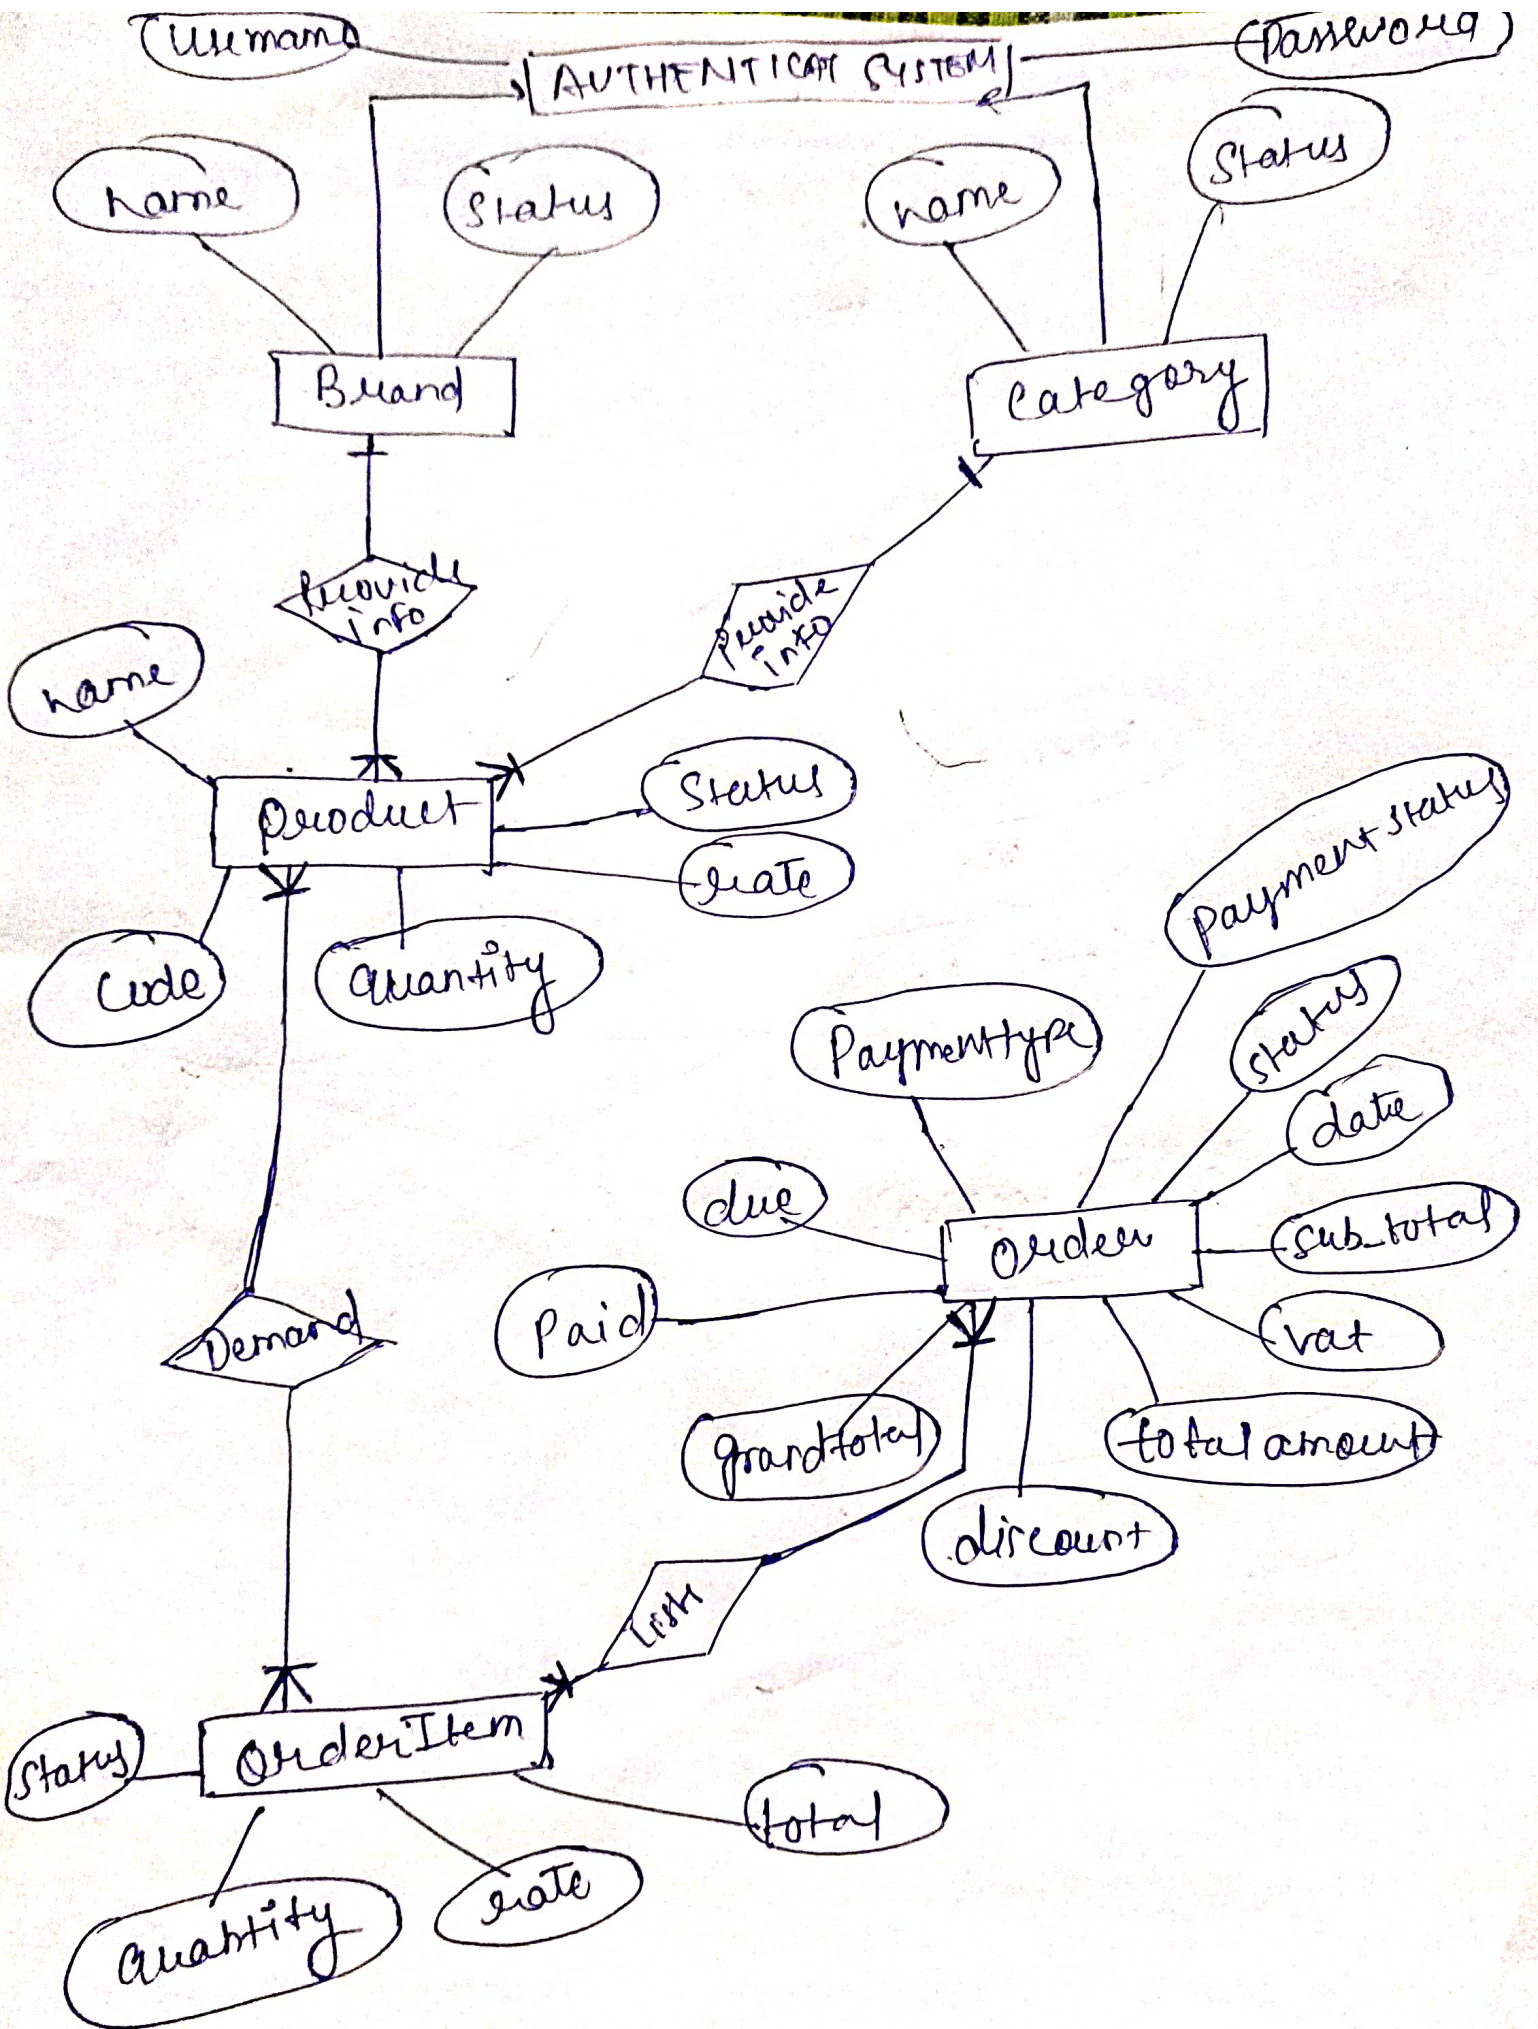 Usernam
AUTHENTICAT SYSTEM
Password
name
Status
name
Status
Brand
Category
Provide
info
Provide
info
name
Product
Status
rate
Code
Quantity
Payment status
Paymenttype
status
date
due
Order
sub_total
Paid
vat
Demand
grandtotal
totalamount
discount
OrderItem
Status
total
rate
Quantity